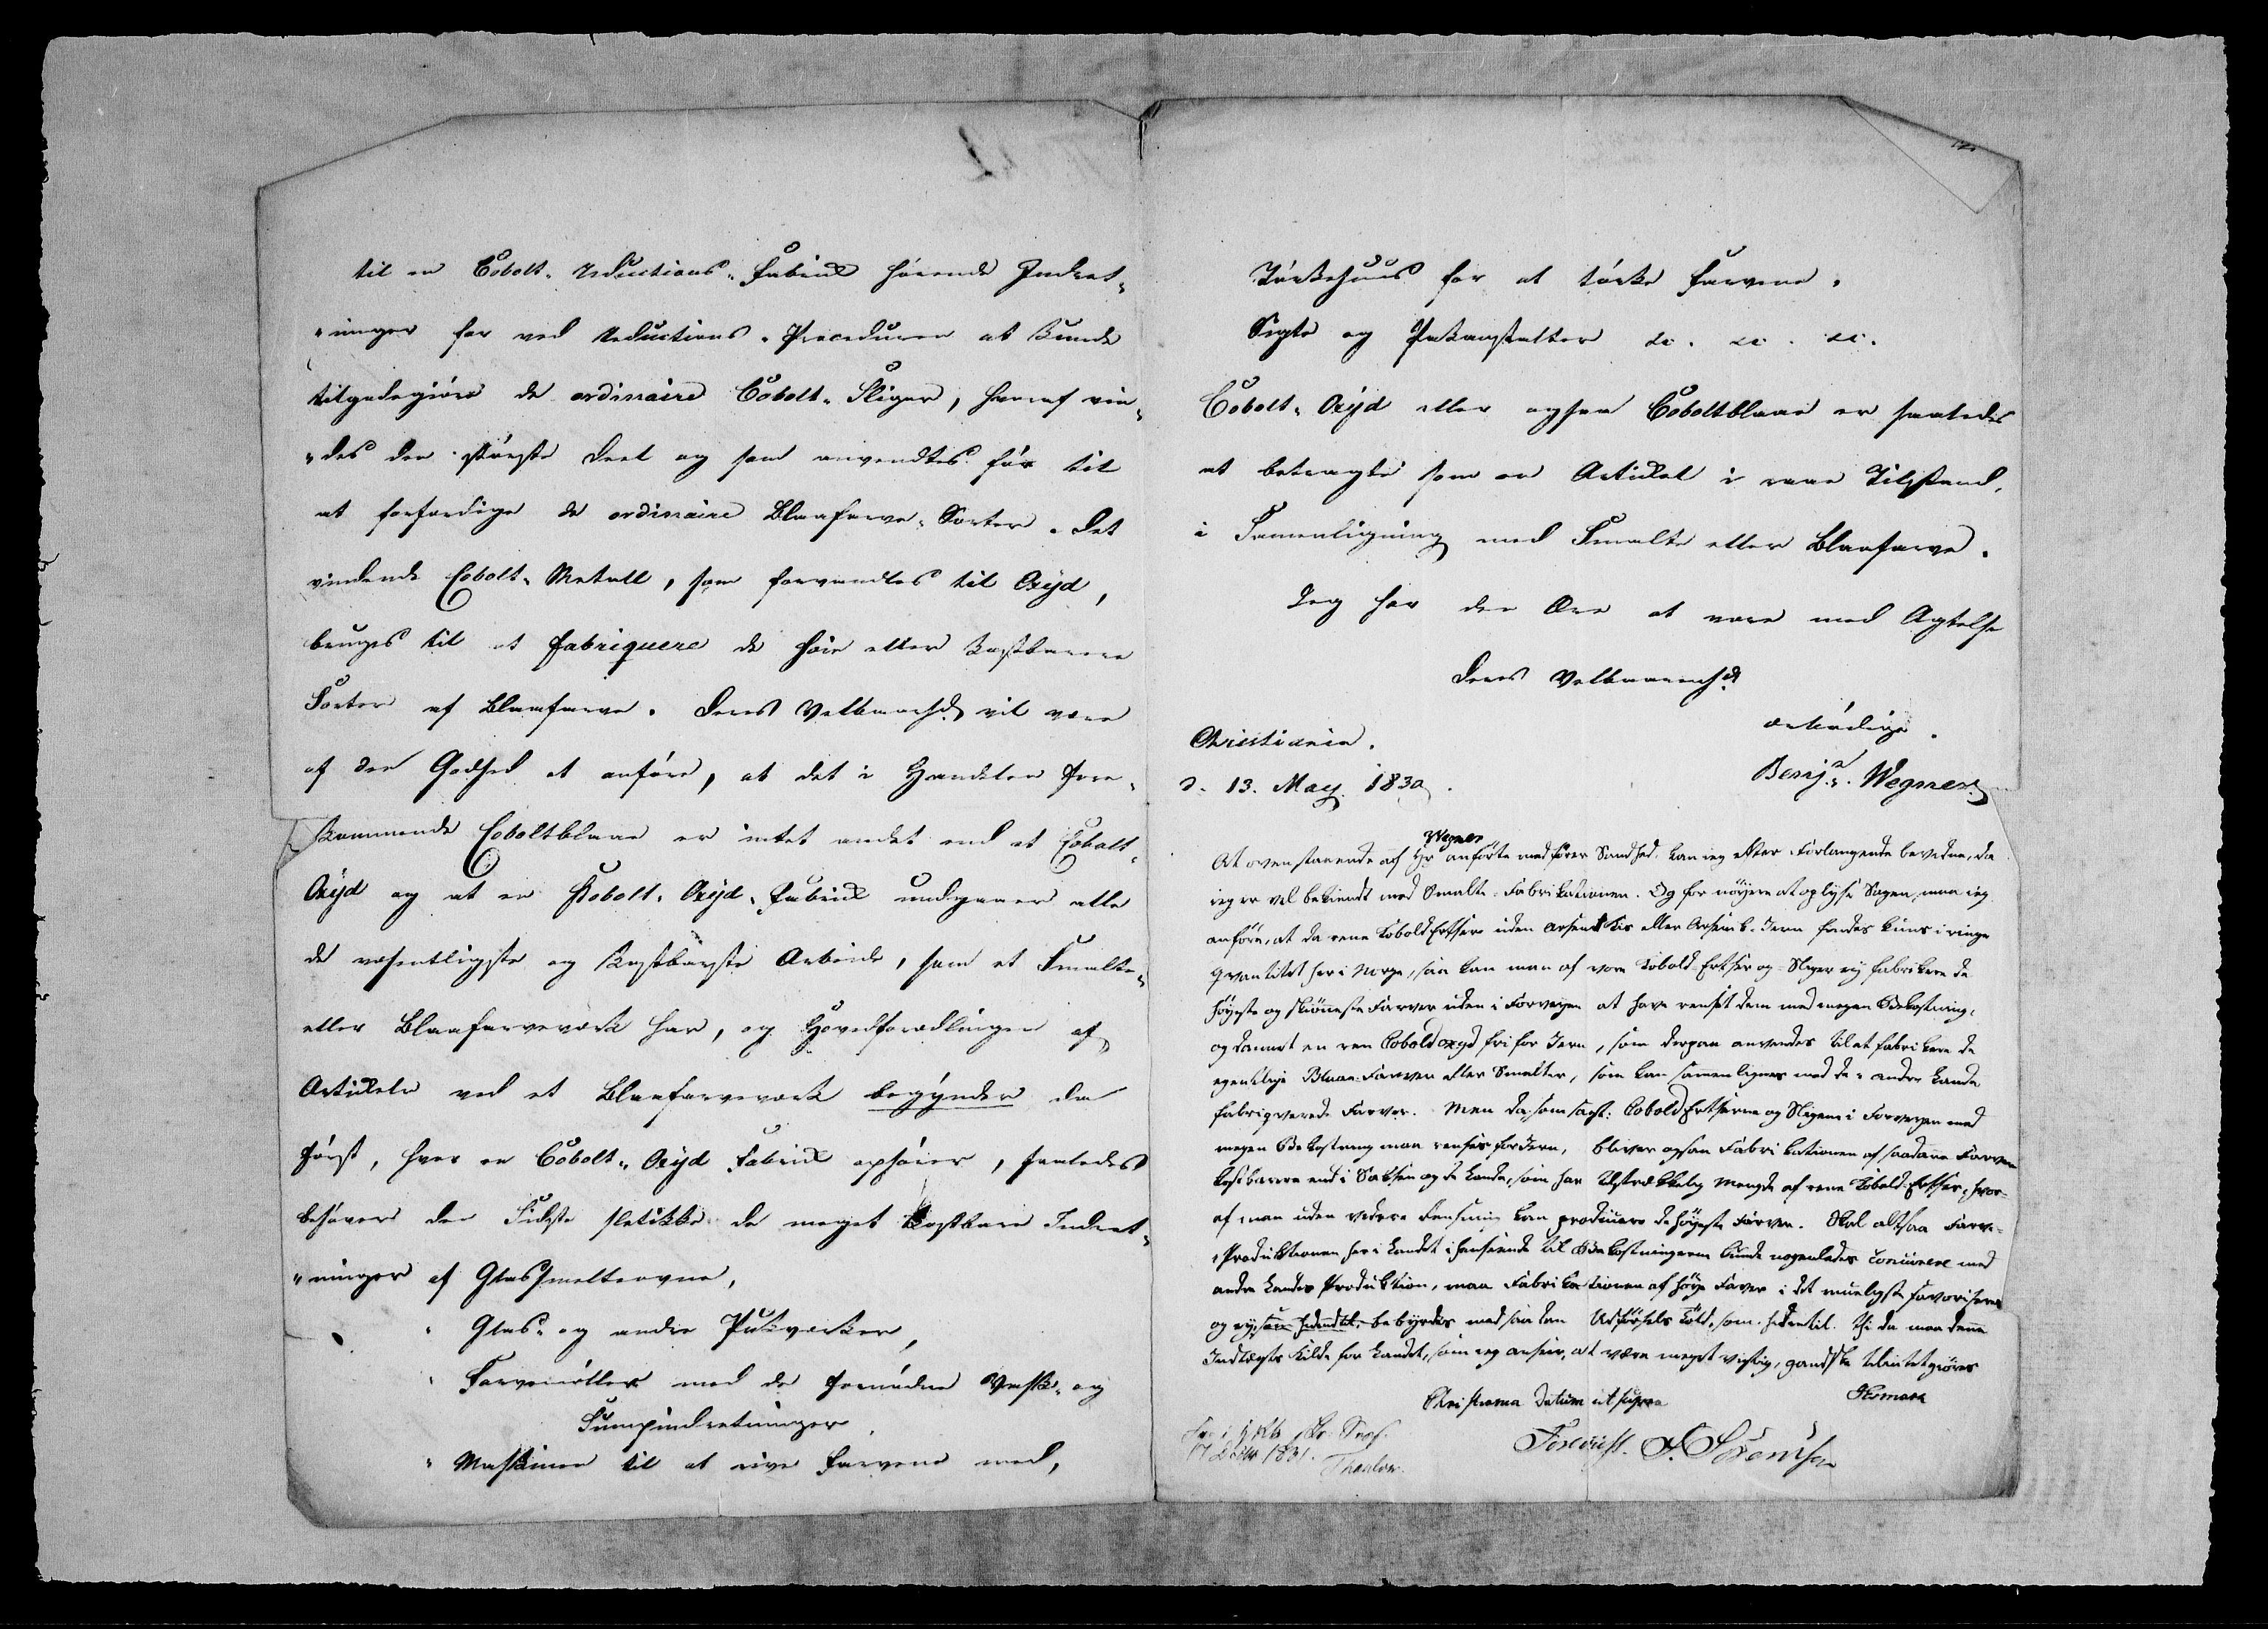 til en Cobolt-Reductions-Fabrik hørende Indret-
"ninger for ved Reductions-Proceduren at kunde
tilgodegjøre de ordinaire Cobolt-Sliger, hvoraf vin-
"des den største Deel og som anvendtes før til
at forfærdige de ordinaire Blaafarve-Sorter. Det
vindende Cobolt-Metall, som forvandles til Oxyd,
bruges til at fabriquere de høie eller kostbarere
Sorter af Blaafarve. Deres Velbaarhd vil være
af den Godhed at anføre, at det i Handelen fore-
kommende Coboltblaae er intet andet end et Cobalt-
Oxyd og at en Kobolt-Oxyd-Fabrik undgaaer alle
de væsentligste og kostbarste Arbeide, som et Smalte-
eller Blaafarveværk har, og Hovedforædlingen af
Artikelen ved et Blaafarveværk begynder da
først, hvor en Cobolt-Oxyd Fabrik ophører, saaledes
behøver den Sidste slet ikke de meget kostbare Indret-
"ninger af Glassmelteovne,
" Glas- og andre Pukværker,
" Farvemøller med de fornødne Vaske- og
Sumpindretninger,
" Maskiner til at rive Farvene med,
Tørkehuus for at tørke Farvene,
Sigte og Pakanstalter &c. &c. &c.
Cobolt-Oxyd eller ogsaa Coboltblaae er saaledes
at betragte som en Artikel i raae Tilstand,
i Samenligning med Smalte eller Blaafarve.
Jeg har den Ære at være med Agtelse
Deres Velbaarenhd
ærbødige
Christiania.
d. 13. May 1830.
Benj. Wegner
Wegner
At ovenstaaende af Hr anførte medfører Sandhed, kan jeg efter Forlangende bevidne, da
jeg er vel bekiendt med Smalte-Fabrikationen. Og for nøyere at oplyse Sagen, maa jeg
anføre, at da rene Kobold Ertser uden Arsenikkis eller Arsenik-Jern findes kuns i ringe
Qvantitet her i Norge, saa kan man af vore Kobold-Ertser og -Sliger ey fabrikere de
høyeste og skiønneste Farver uden i Forveyen at have renset dem med megen Bekostning,
og dannet en ren Cobold oxyd fri for Jern, som derpaa anvendes til at fabrikere de
egentlige Blaae-Farver eller Smalter, som kan sammenlignes med de i andre Lande
fabriqverede Farver. Men da, som sagt: Cobold Ertserne og Sligene i Forveyen med
megen Bekostning maa renses for Jern, bliver ogsaa Fabrikationen af saadane Farver
kostbarere end i Saksen og de Lande, som har tilstrækkelig Mengde af rene Kobold-Ertser, hvor-
af man uden videre Rensning kan producere de høyeste Farver. Skal altsaa Farve-
Produktionen her i Landet i henseende til Bekostningerne kunde nogenledes concurrere med
andre Landes Produktion, maa Fabrikationen af høye Farver i det mueligste favoriseres
og ey, som hidindtil, bebyrdes med saadan Udførsels Told, som hidentil. Thi da maa denne
Indtægts Kilde for Landet, som jeg anseer, at være meget vigtig, gandske tilintetgiøres
Christiania Datum ut supra
Esmark
17 1831.
Thaulow.
F. Sørensen